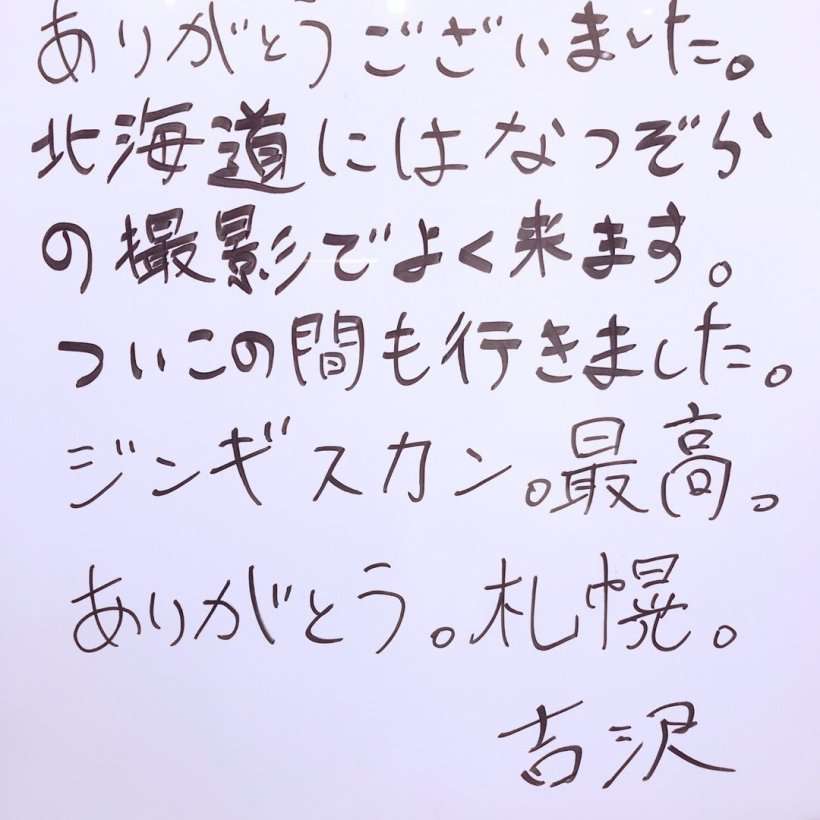 ありがとうございました。
北海道にはなつぞら
の撮影でよく来ます。
ついこの間も行きました。
ジンギスカン。最高。
ありがとう。札幌。
吉沢